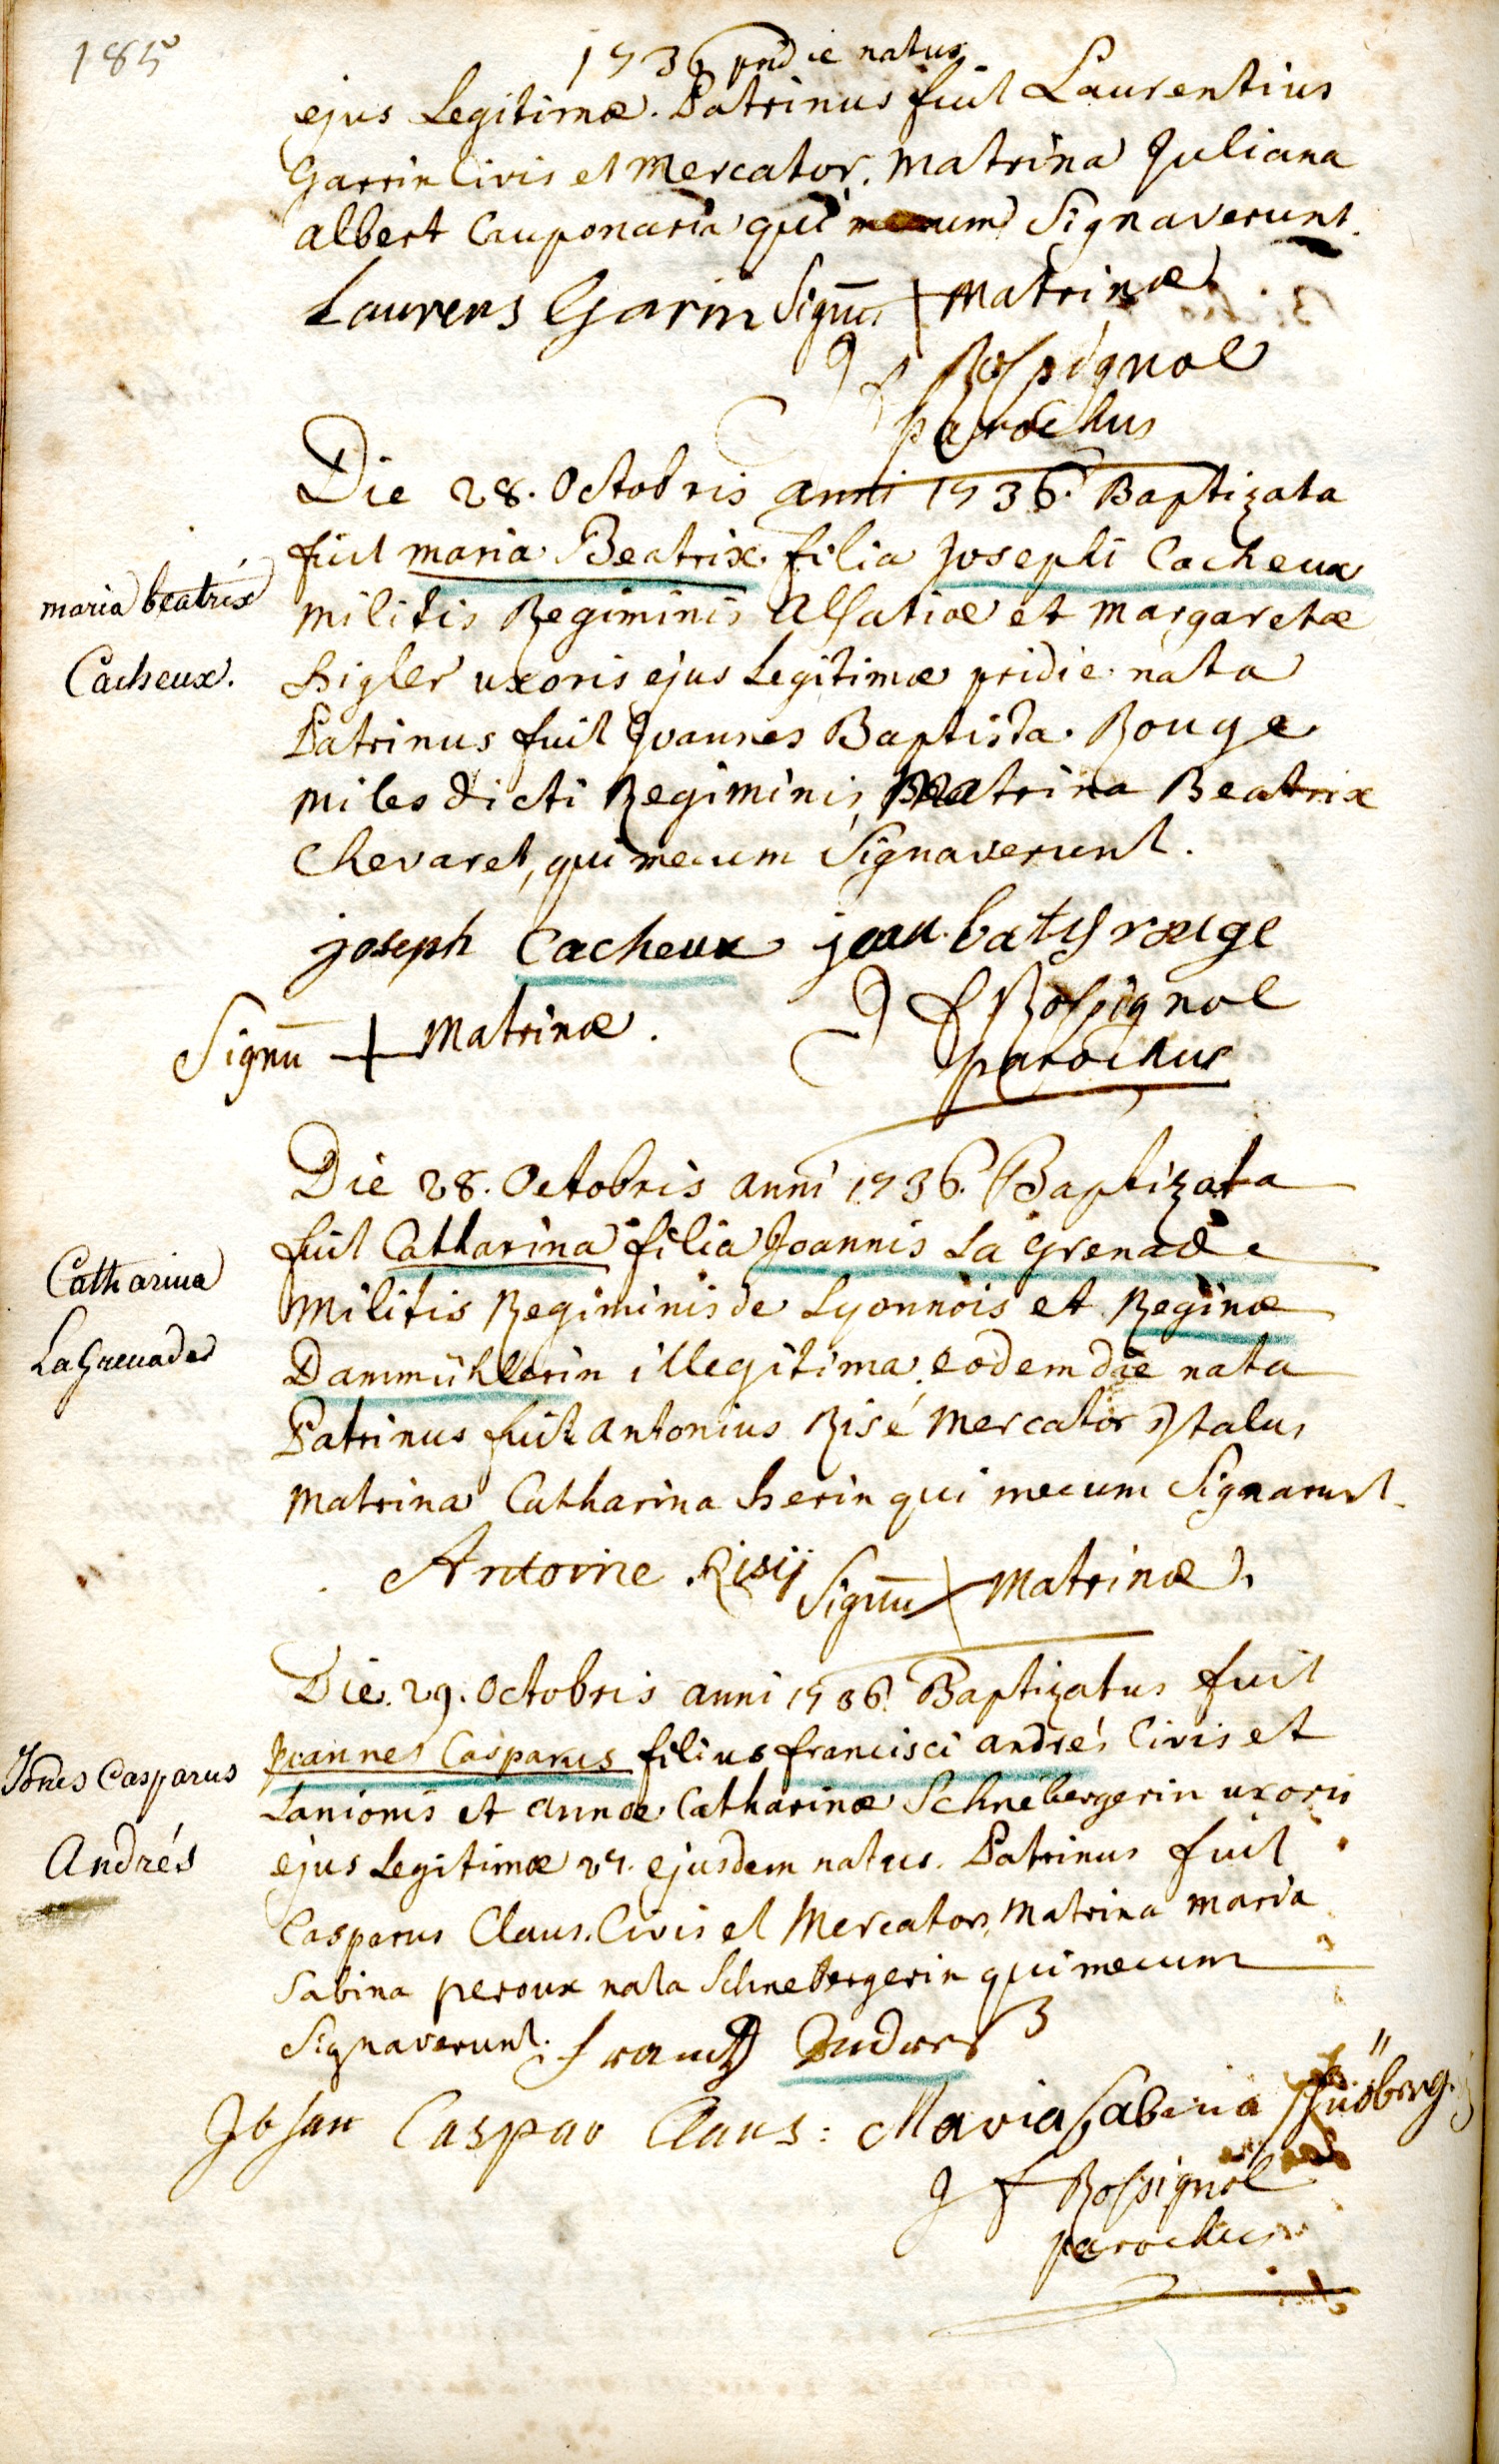 185
1736 pridie natus
ejus Legitimæ. Patrinus fuit Laurentius
Garrin Civis et Mercator. Matrina Juliana
Albert Cauponaria qui mecum Signaverunt.
Laurens Garin Signū + Matrinæ
J f Rossignol
parochus
Die 28. Octobris anni 1736. Baptizata
fuit maria Beatrix filia Josephi Cacheux
maria beatrix
Cacheux.
militis Regiminis Alsatiæ et Margaretæ
higler uxoris ejus Legitimæ pridie nata
Patrinus fuit Joannes Baptista Rouge
miles dicti Regiminis, Matrina Beatrix
Chevaret, qui mecum Signaverunt.
joseph Cacheux jean batis rouge
Signū + Matrinæ.
J f Rossignol
parochus
Die 28. Octobris anni 1736. Baptizata
fuit Catharina filia Joannis La Grenade
Catharina
La Grenade
Militis Regiminis de Lyonnois et Reginæ
Dammühlerin illegitima, eodem die nata
Patrinus fuit Antonius Risé Mercator Italus
Matrina Catharina herin qui mecum Signarunt.
Antoine Risij Signū + Matrinæ.
Die 29. Octobris anni 1736. Baptizatus fuit
Joannes Casparus filius francisci andrés Civis et
Jŏnes Casparus
Andrés
Lanionis et annæ Catharinæ Schnebergerin uxoris
ejus Legitimæ 27. ejusdem natus. Patrinus fuit
Casparus Claus. Civis et Mercator, Matrina maria
Sabina peroux nata Schnebergerin qui mecum
Signaverunt. frantz Andres
Johan Caspar Claus: Maria Sabina
J f Rossignol
parochus